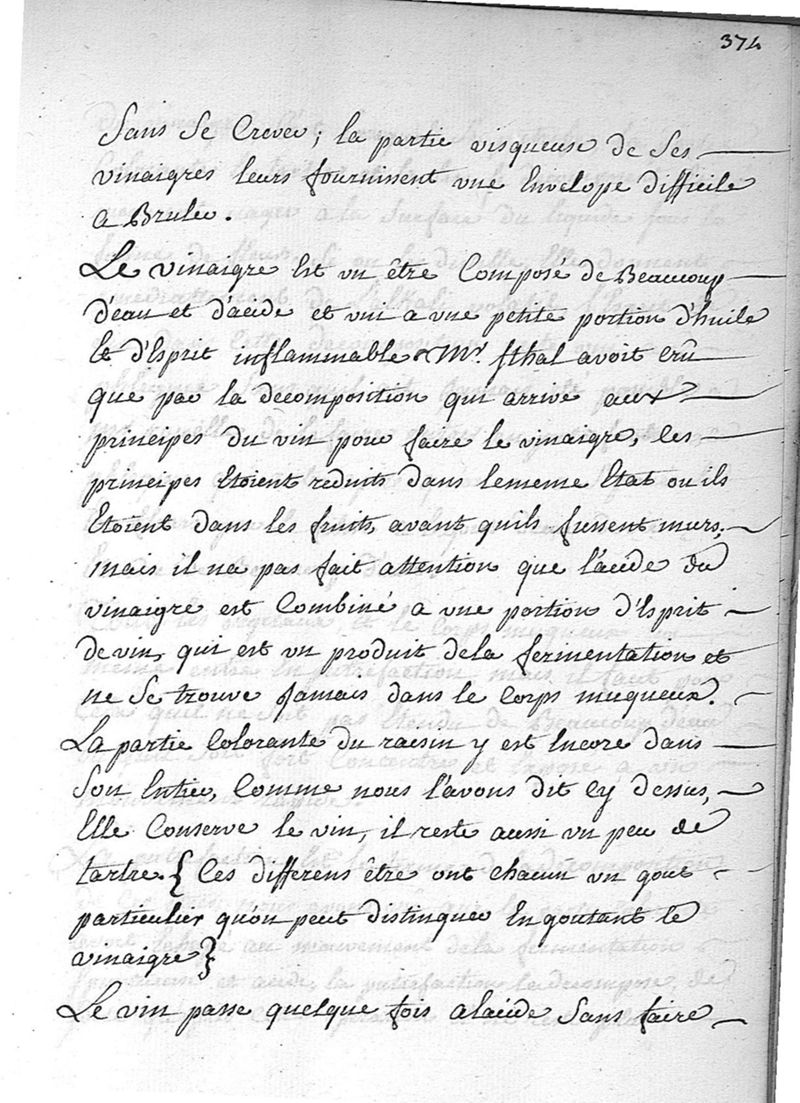 374
Sans Se Crever; la partie visqueuse de Ses
vinaigres leurs fournissent une Envelope difficile
a Bruler.
Le vinaigre Est un être Composé de Beaucoup
d'eau et d'acide et uni a une petite portion d'huile
Et d'Esprit inflammable Mr. Sthal avoit crû
que par la decomposition qui arrive aux
principes du vin pour faire le vinaigre, les
principes Etoient reduits dans lememe Etat ou ils
Etoient dans les fruits, avant quils fussent murs,
mais il na pas fait attention que l'acide du
vinaigre est Combiné a une portion d'Esprit
de vin, qui est un produit dela fermentation et
ne Se trouve Jamais dans le Corps muqueux.
La partie Colorante du raisin y est Encore dans
Son Entier, Comme nous l'avons dit Cy dessus,
Elle Conserve le vin, il reste aussi un peu de
tartre. { Ces differens être ont chacun un gout
particulier qu'on peut distinguer En goutant le
vinaigre }
Le vin passe quelque fois alacide Sans faire